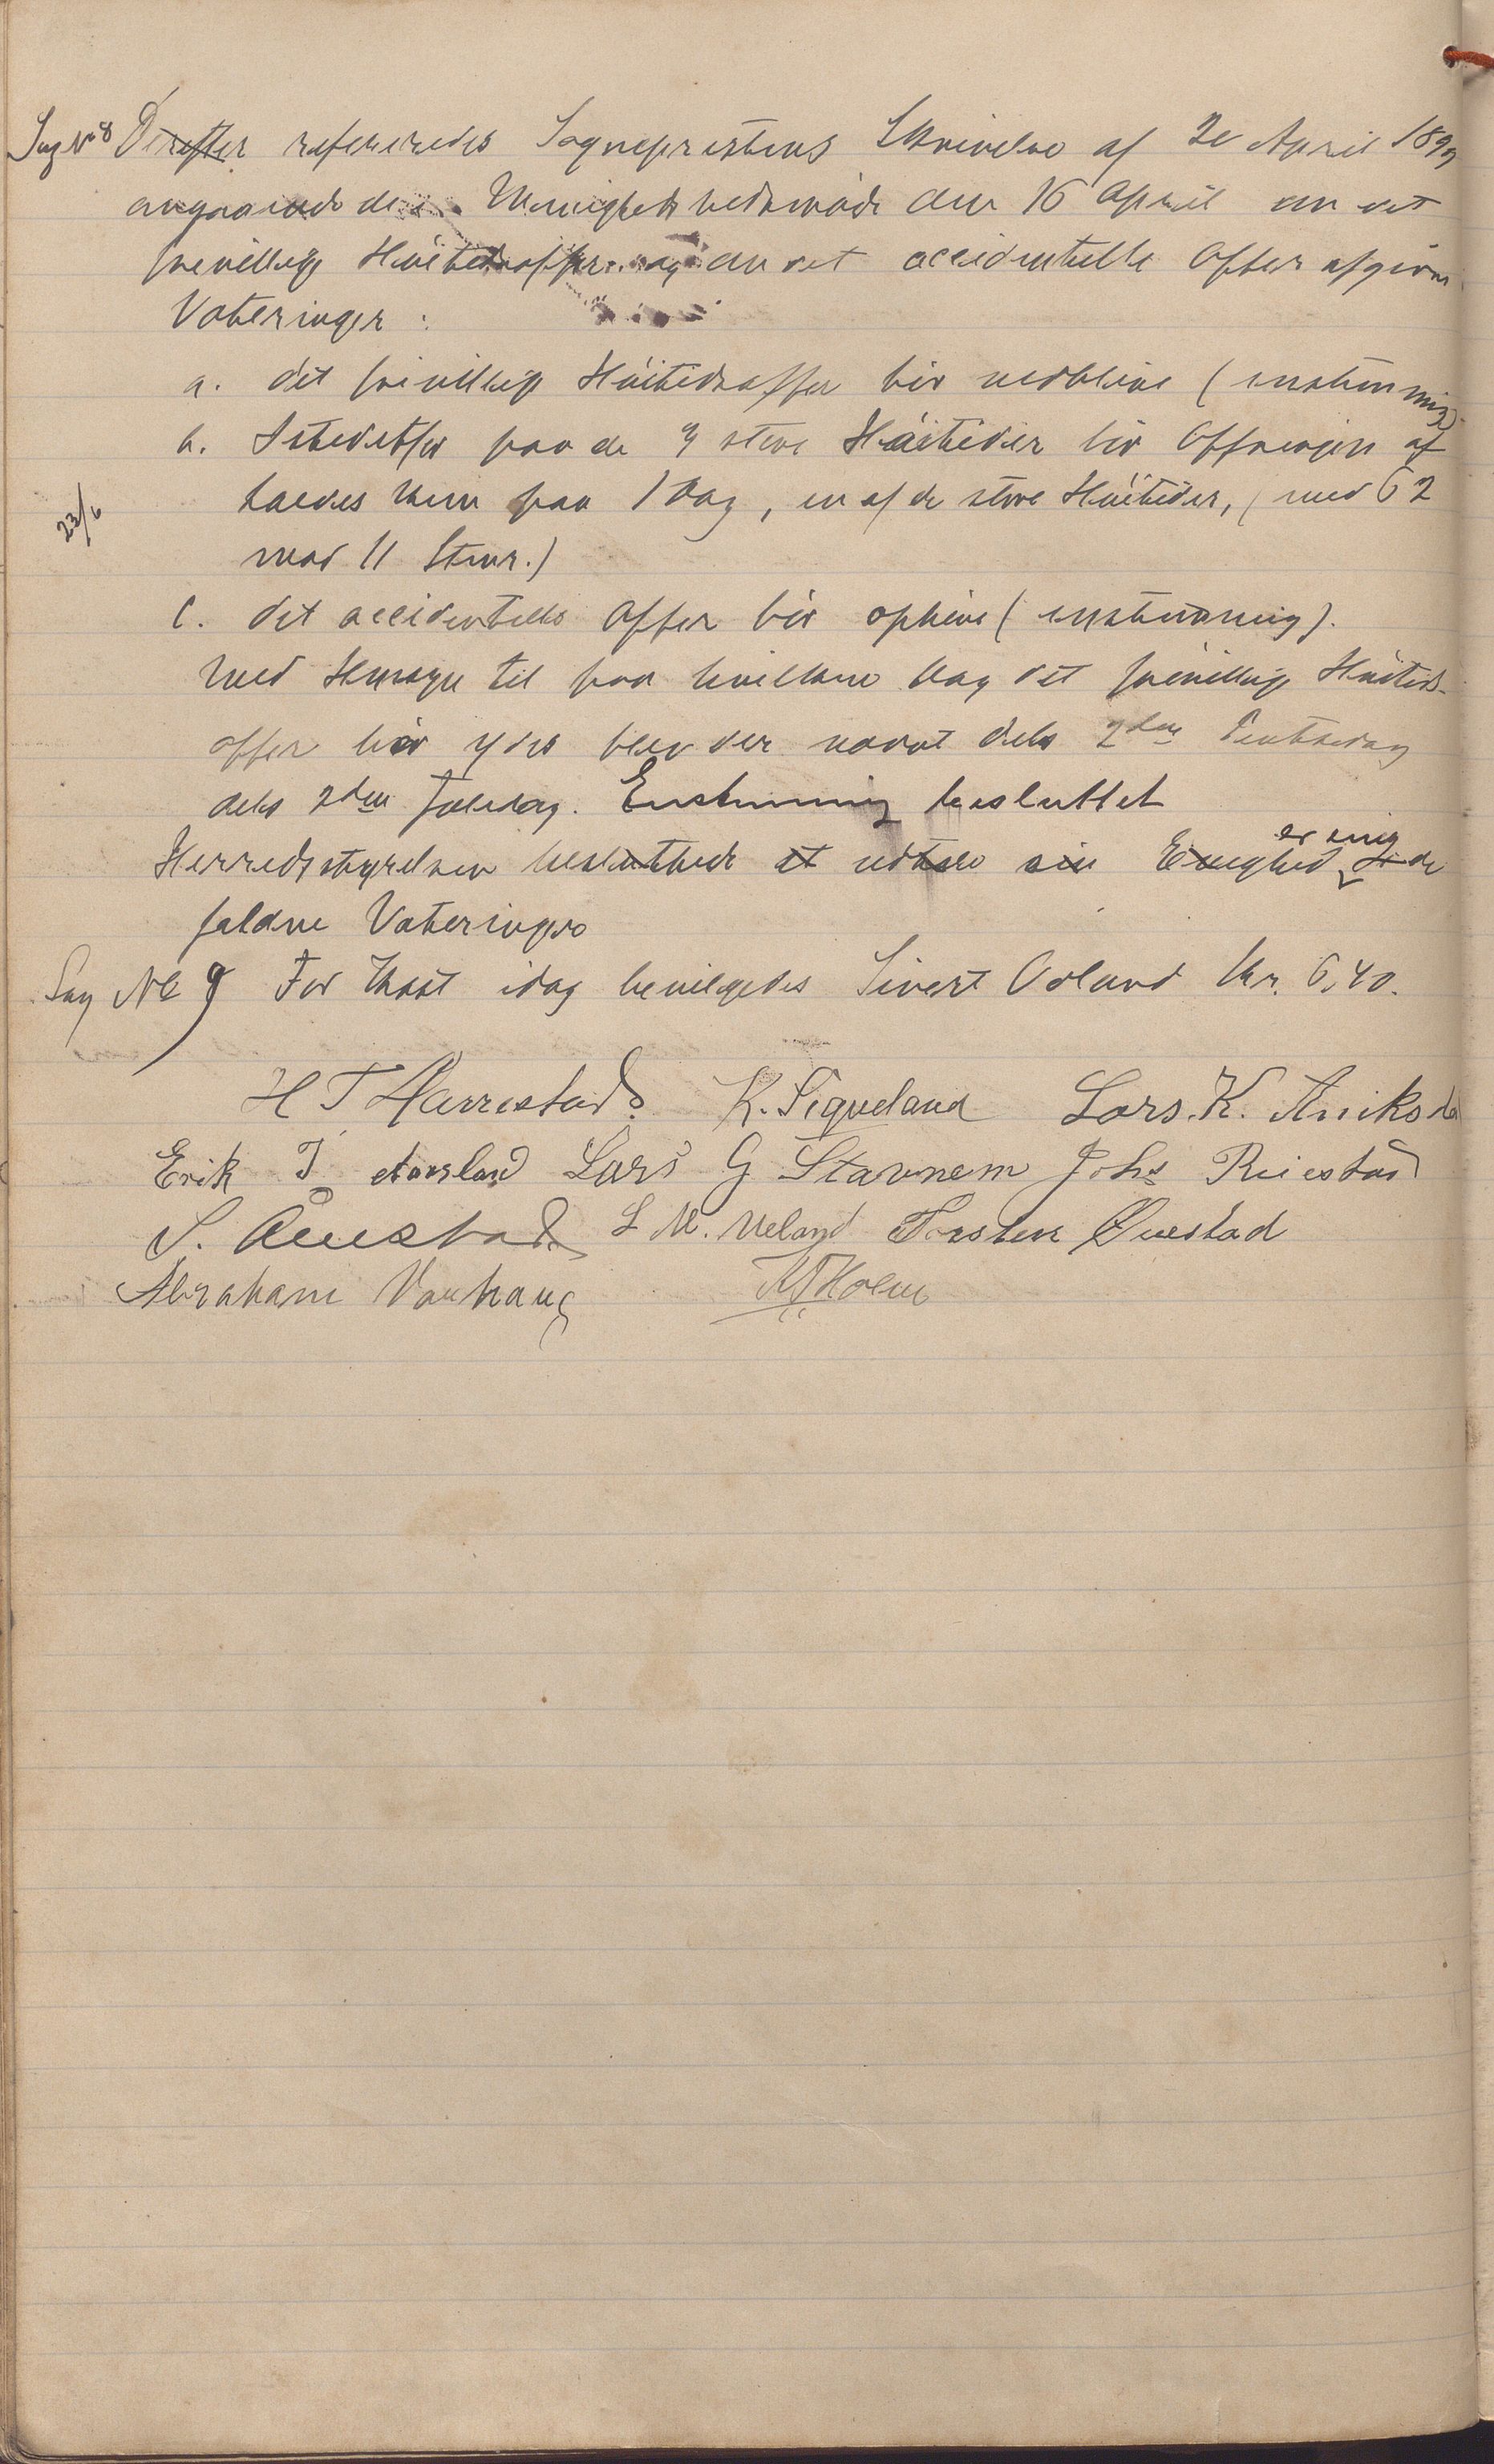 Sag No 8 Derefter refereredes Sognepræstens Skrivelse af 20 April 1899
angaaende de i Menighedsmøde den 16 April om det
frivillige Høitidsoffer og om det accidentelle Offer afgivne
Voteringer :
a. det frivillige Høitidsoffer bør vedblive (enstemmig)
b. Istedetfor paa de 3 store Høitider bør Offringen af
holdes kun paa 1 Dag, en af de store Høitider, (med 62
mod 11 Stemr.)
23/6
c. det accidentelle Offer bør ophøre (enstemmig).
Med Hensyn til paa hvilken Dag det frivillige Høitids-
offer bør ydes blev der nævnt dels 2den Pintsedag
dels 2den Juledag. Enstemmig besluttet
Herredsstyrelsen besluttede at udtale sin Enighed er enig i de
faldne Voteringer
Sag No 9 For Skyds idag bevilgedes Sivert Odland Kr. 6,40.
H T Harrestad. K. Sigveland Lars. K. Aniksdal
Erik T Aarsland Lars G Stavnem Johs Riiestad
S. Auestad L M. Ueland Torsten Øuestad
Abraham Varhaug M Holm